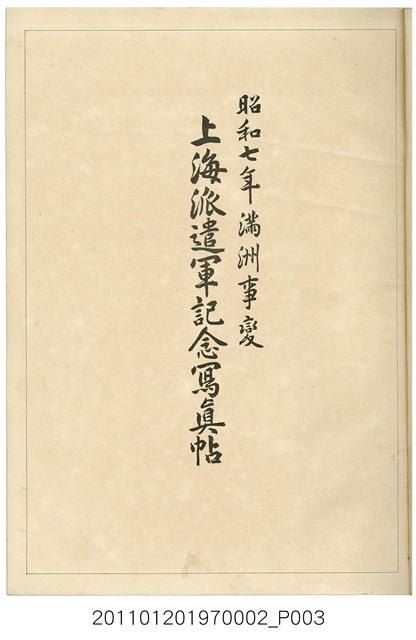 昭和七年滿洲事變
上海派遣軍記念寫眞帖
201101201970002_P003